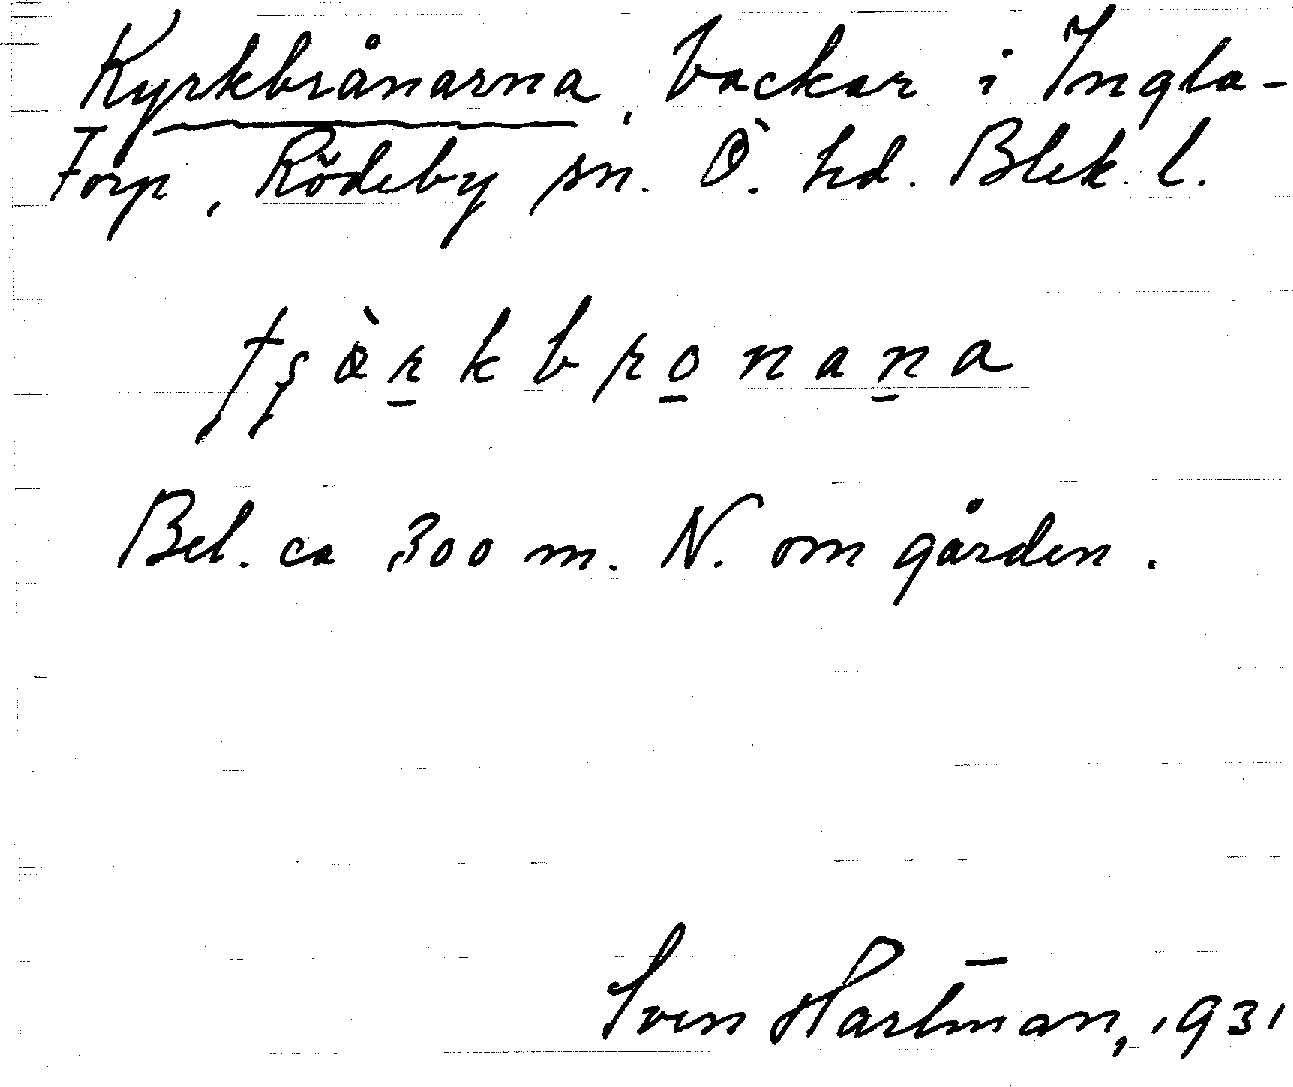 Kyrkbrånarna, backar i Ingla-
torp, Rödeby sn. Ö. hd. Blek. l.
tʂö̀rkbronana
Bel. ca 300 m. N. om gården.
Sven Hartman, 1931